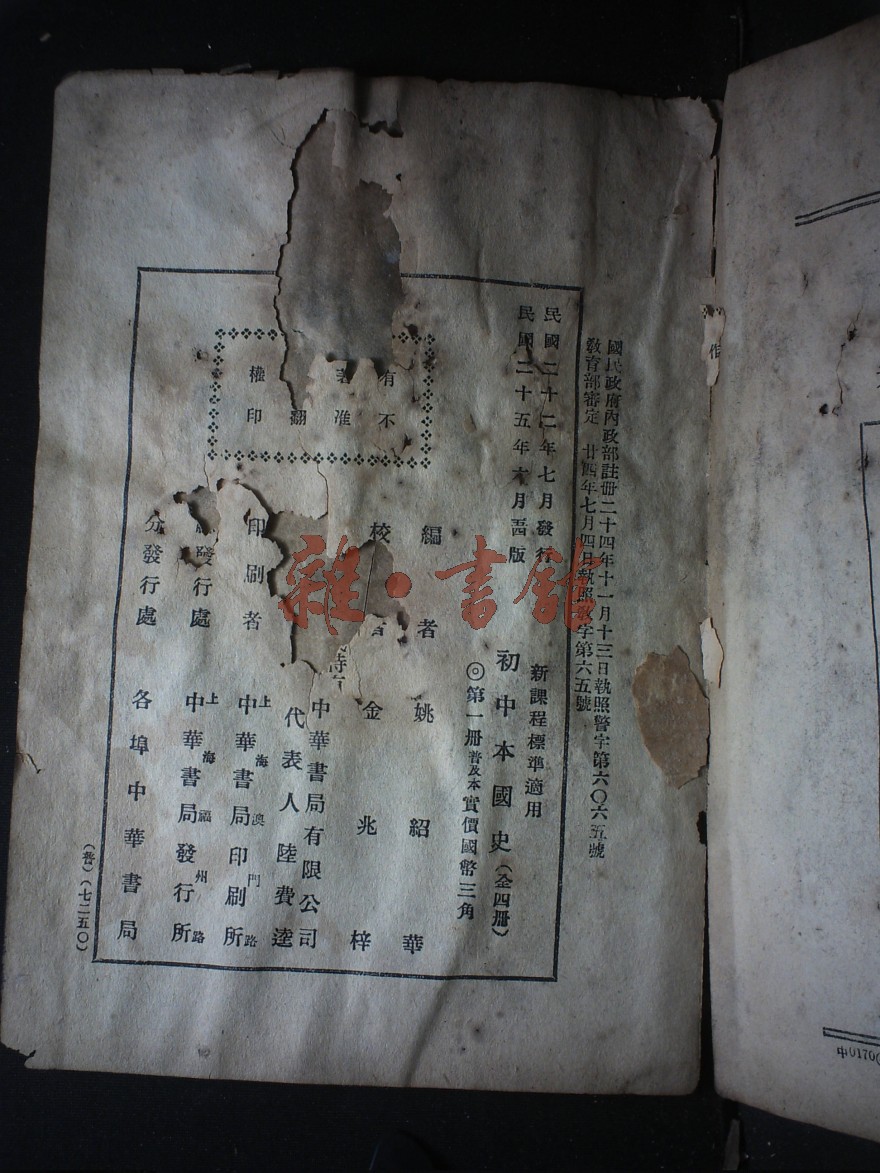 國民政府內政部註冊二十四年十一月十三日執照警字第六〇六五號
敎育部審定 廿四年七月四日執照敎字第六五號
民國二十二年七月發行
民國二十五年六月版
新課程標準適用
初中本國史(全四册)
◎第一册普及本實價國幣三角
有著權
不准翻印
編者 姚紹華
校者 金兆梓
中華書局有限公司
代表人 陸費逵
印刷者 上海澳門路 中華書局印刷所
發行處 上海福州路 中華書局發行所
分發行處 各埠中華書局
(普)(七二五〇)
雜·書館
作
中0170